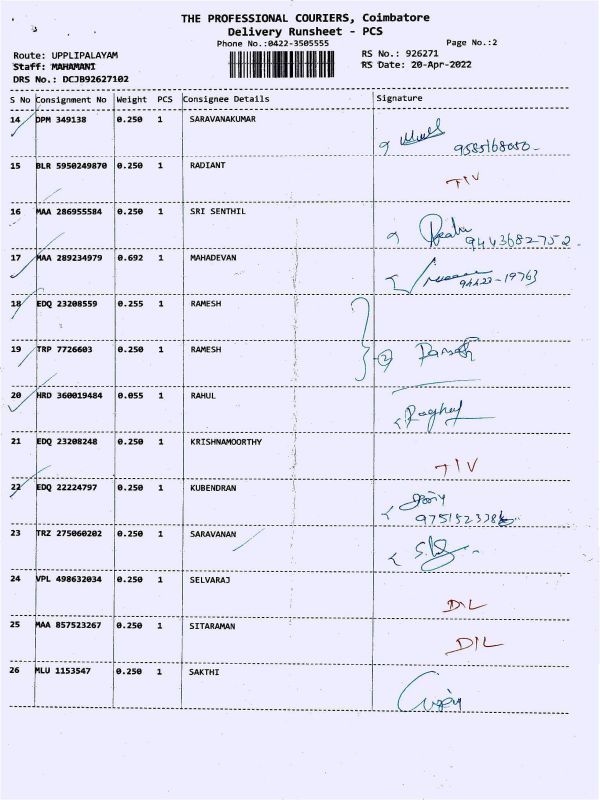 THE PROFESSIONAL COURIERS, Coimbatore
Delivery Runsheet - PCS
Phone No.:0422-3505555 Page No.:2
Route: UPPLIPALAYAM RS No.: 926271
Staff: MAHAMANI RS Date: 20-Apr-2022
DRS No.: DCJB92627102
S No Consignment No Weight PCS Consignee Details Signature
14 DPM 349138 0.250 1 SARAVANAKUMAR
9585168050
15 BLR 5950249870 0.250 1 RADIANT TIV
16 MAA 286955584 0.250 1 SRI SENTHIL
9443682752
17 MAA 289234979 0.692 1 MAHADEVAN
94422-19763
18 EDQ 23208559 0.255 1 RAMESH
19 TRP 7726603 0.250 1 RAMESH 2
20 HRD 360019484 0.055 1 RAHUL
21 EDQ 23208248 0.250 1 KRISHNAMOORTHY TIV
22 EDQ 22224797 0.250 1 KUBENDRAN
23 TRZ 275060202 0.250 1 SARAVANAN
24 VPL 498632034 0.250 1 SELVARAJ D/L
25 MAA 857523267 0.250 1 SITARAMAN D/L
26 MLU 1153547 0.250 1 SAKTHI